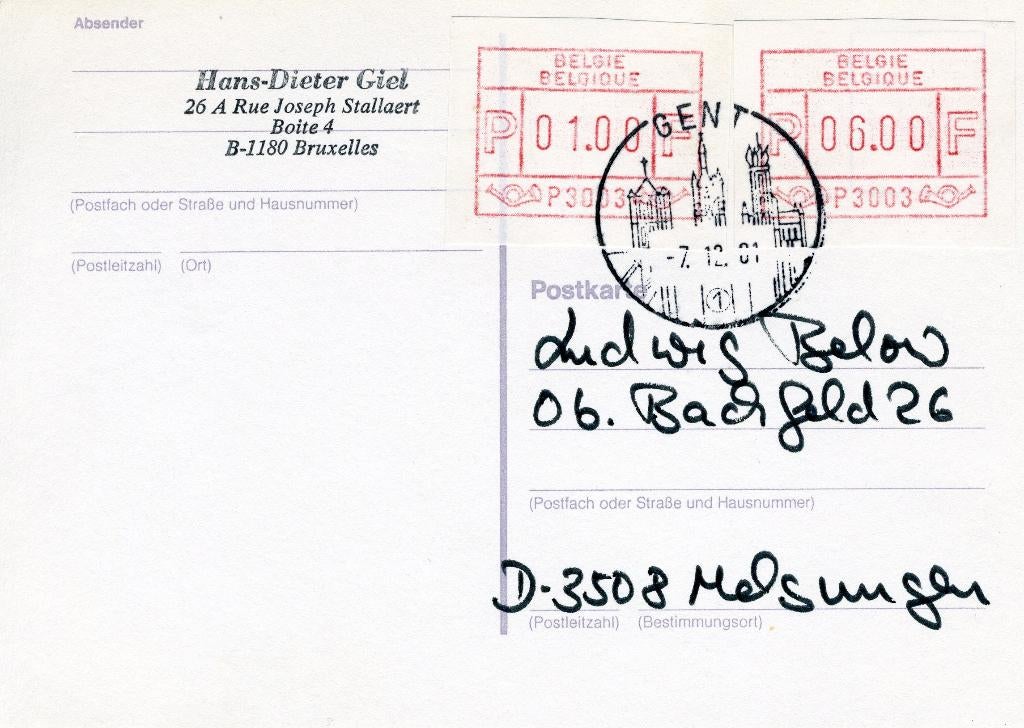 Absender
Hans-Dieter Giel
26 A Rue Joseph Stallaert
Boite 4
B-1180 Bruxelles
(Postfach oder Straße und Hausnummer)
(Postleitzahl) (Ort)
BELGIE
BELGIQUE
P 01.00 F
P3003
BELGIE
BELGIQUE
P 06.00 F
P3003
GENT
-7. 12. 81
1
Postkarte
Ludwig Below
Ob. Bachfeld 26
(Postfach oder Straße und Hausnummer)
D-3508 Melsungen
(Postleitzahl) (Bestimmungsort)